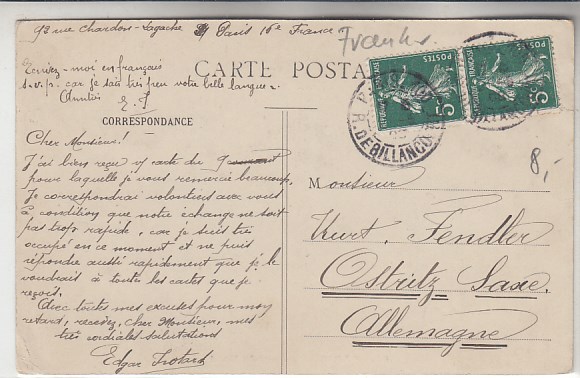 92 rue Chardon-Lagache Paris 16e France
Frankr.
Ecrivez-moi en français
s.v.p. car je sais très peu votre belle langue.
Amitiés
E. F
CARTE POSTA
CORRESPONDANCE
Cher Monsieur!
J'ai bien reçu v/ carte du
pour laquelle je vous remercie beaucoup.
Je correspondrai volontiers avec vous
à condition que notre échange ne soit
pas trop rapide, car je suis très
occupé en ce moment et ne puis
répondre aussi rapidement que je le
voudrais à toutes les cartes que je
reçois.
Avec toutes mes excuses pour mon
retard, recevez, cher Monsieur, mes
très cordiales salutations
Edgar
POSTES
REPUBLIQUE FRANÇAISE
5c
POSTES
REPUBLIQUE FRANÇAISE
5c
R. DE BILLANCOURT
8,-
Monsieur
Kurt. Fendler
Ostritz Saxe
Allemagne